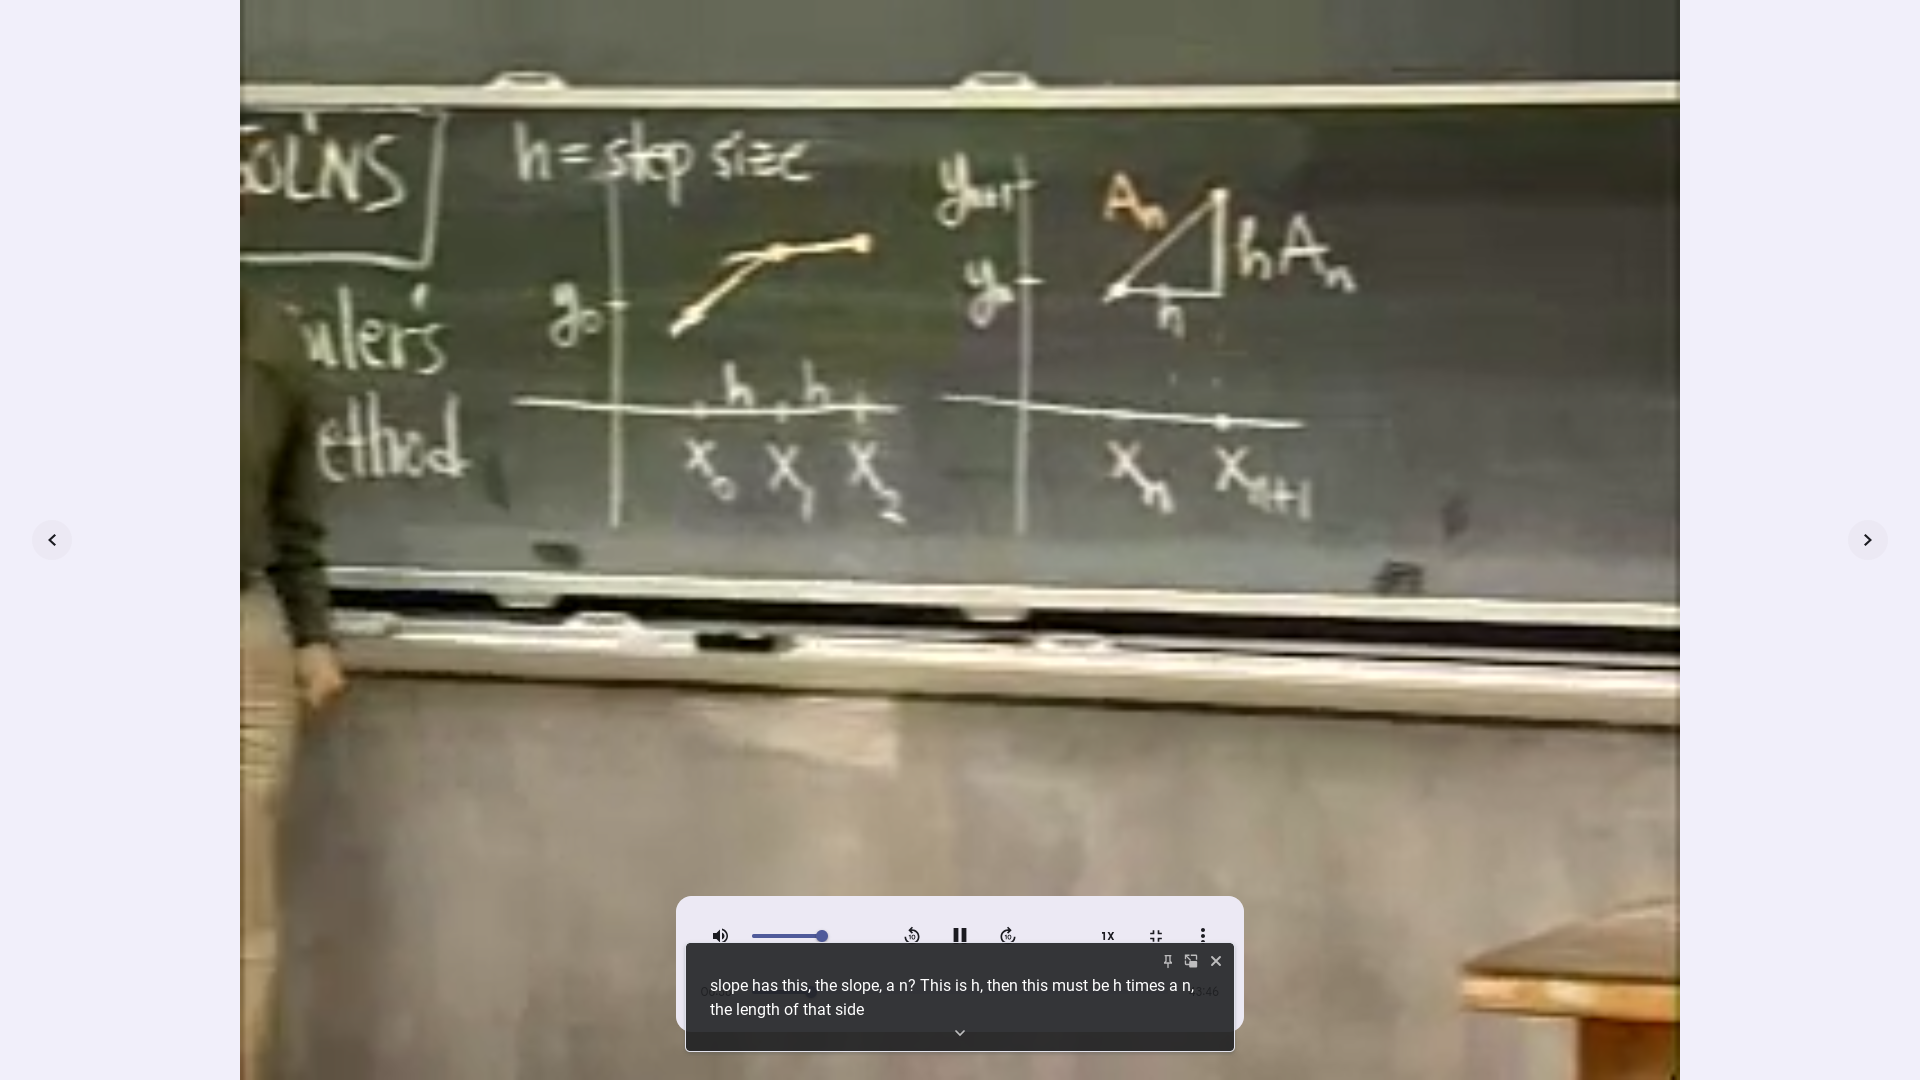 SOL'NS
h = step size
y₀
h h
x₀ x₁ x₂
yₙ₊₁
yₙ
Aₙ
hAₙ
h
xₙ xₙ₊₁
uler's
ethod
10
10
1X
slope has this, the slope, a n? This is h, then this must be h times a n,
the length of that side